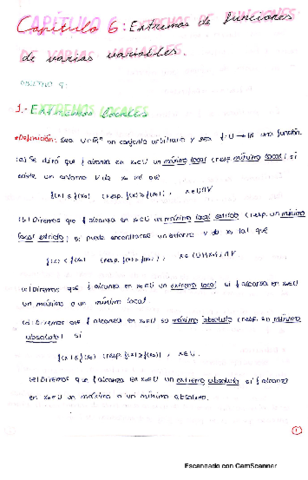 Capítulo 6: Extremos de funciones
de varias variables.
1.- Extremos locales
•Definición: Sea U⊂ℝⁿ un conjunto arbitrario y sea f:U→ℝ una función.
(a) Se dirá que f alcanza en x₀∈U un máximo local (resp. mínimo local) si
existe un entorno V de x₀ tal que
f(x)≤f(x₀) (resp. f(x)≥f(x₀)), x∈U∩V
(b) Diremos que f alcanza en x₀∈U un máximo local estricto (resp. un mínimo
local estricto) si puede encontrarse un entorno V de x₀ tal que
f(x)<f(x₀) (resp. f(x)>f(x₀)), x∈(U\{x₀})∩V
(c) Diremos que f alcanza en x₀∈U un extremo local si f alcanza en x₀
un máximo o un mínimo local.
(d) Diremos que f alcanza en x₀∈U su máximo absoluto (resp. su mínimo
absoluto) si
f(x)≤f(x₀) (resp. f(x)≥f(x₀)), x∈U.
(e) Diremos que f alcanza en x₀∈U un extremo absoluto si f alcanza
en x₀∈U un máximo o un mínimo absoluto.
1
Escaneado con CamScanner